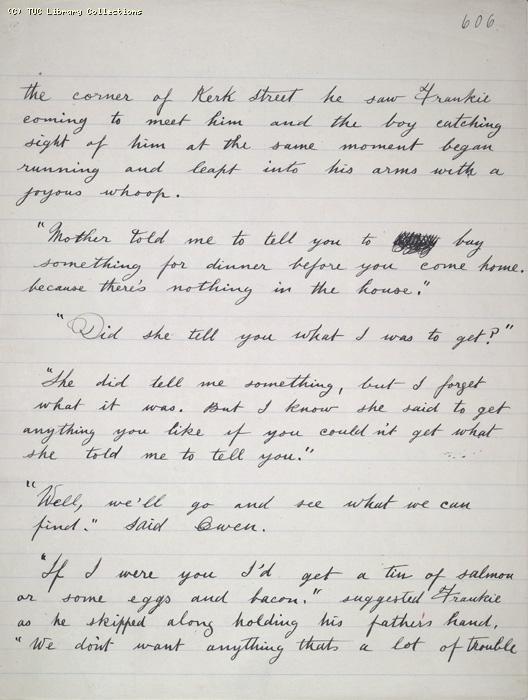 (C) TUC Library Collections
606
the corner of Kerk street he saw Frankie
coming to meet him and the boy catching
sight of him at the same moment began
running and leapt into his arms with a
joyous whoop.
"Mother told me to tell you to buy
something for dinner before you come home.
because there's nothing in the house."
"Did she tell you what I was to get?"
"She did tell me something, but I forget
what it was. But I know she said to get
anything you like if you could n't get what
she told me to tell you."
"Well, we'll go and see what we can
find." said Owen.
"If I were you I'd get a tin of salmon
or some eggs and bacon." suggested Frankie
as he skipped along holding his father's hand.
"We don't want anything thats a lot of trouble